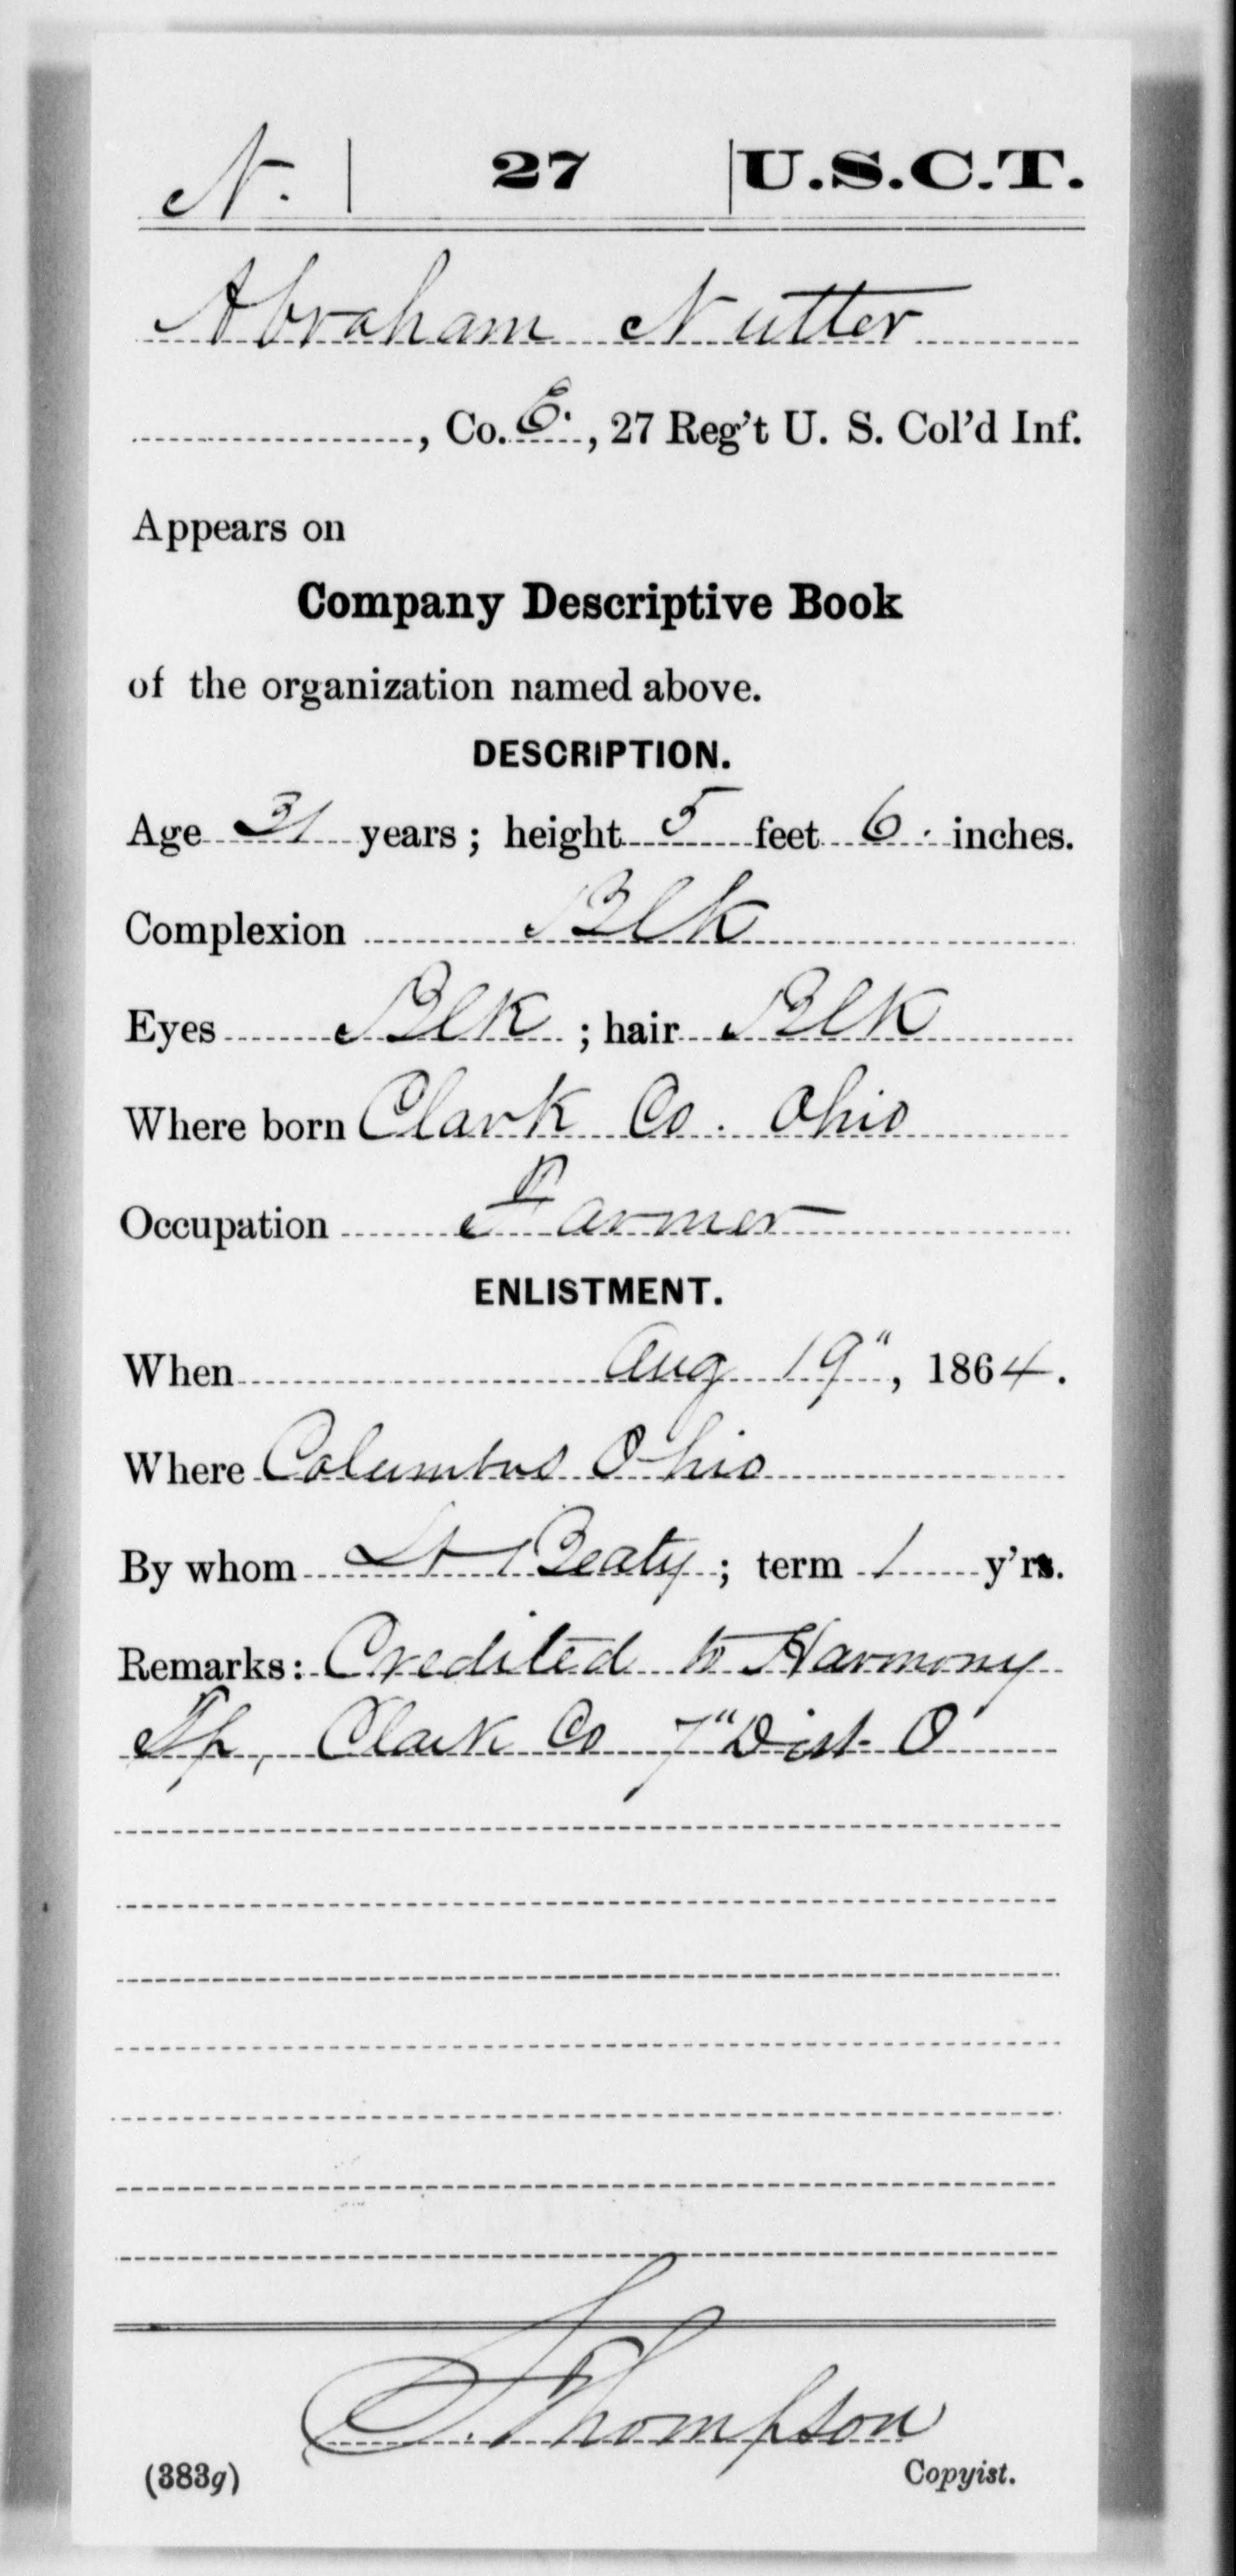 N. | 27 | U.S.C.T.
Abraham Nutter
, Co. E., 27 Reg't U. S. Col'd Inf.
Appears on
Company Descriptive Book
of the organization named above.
DESCRIPTION.
Age 31 years; height 5 feet 6 inches.
Complexion Blk
Eyes Blk ; hair Blk
Where born Clark Co. Ohio
Occupation Farmer
ENLISTMENT.
When Aug 19", 1864.
Where Columbus Ohio
By whom Lt Beaty ; term 1 y'rs.
Remarks: Credited to Harmony
Tp, Clark Co 7" Dist. O
Thompson
(383g) Copyist.